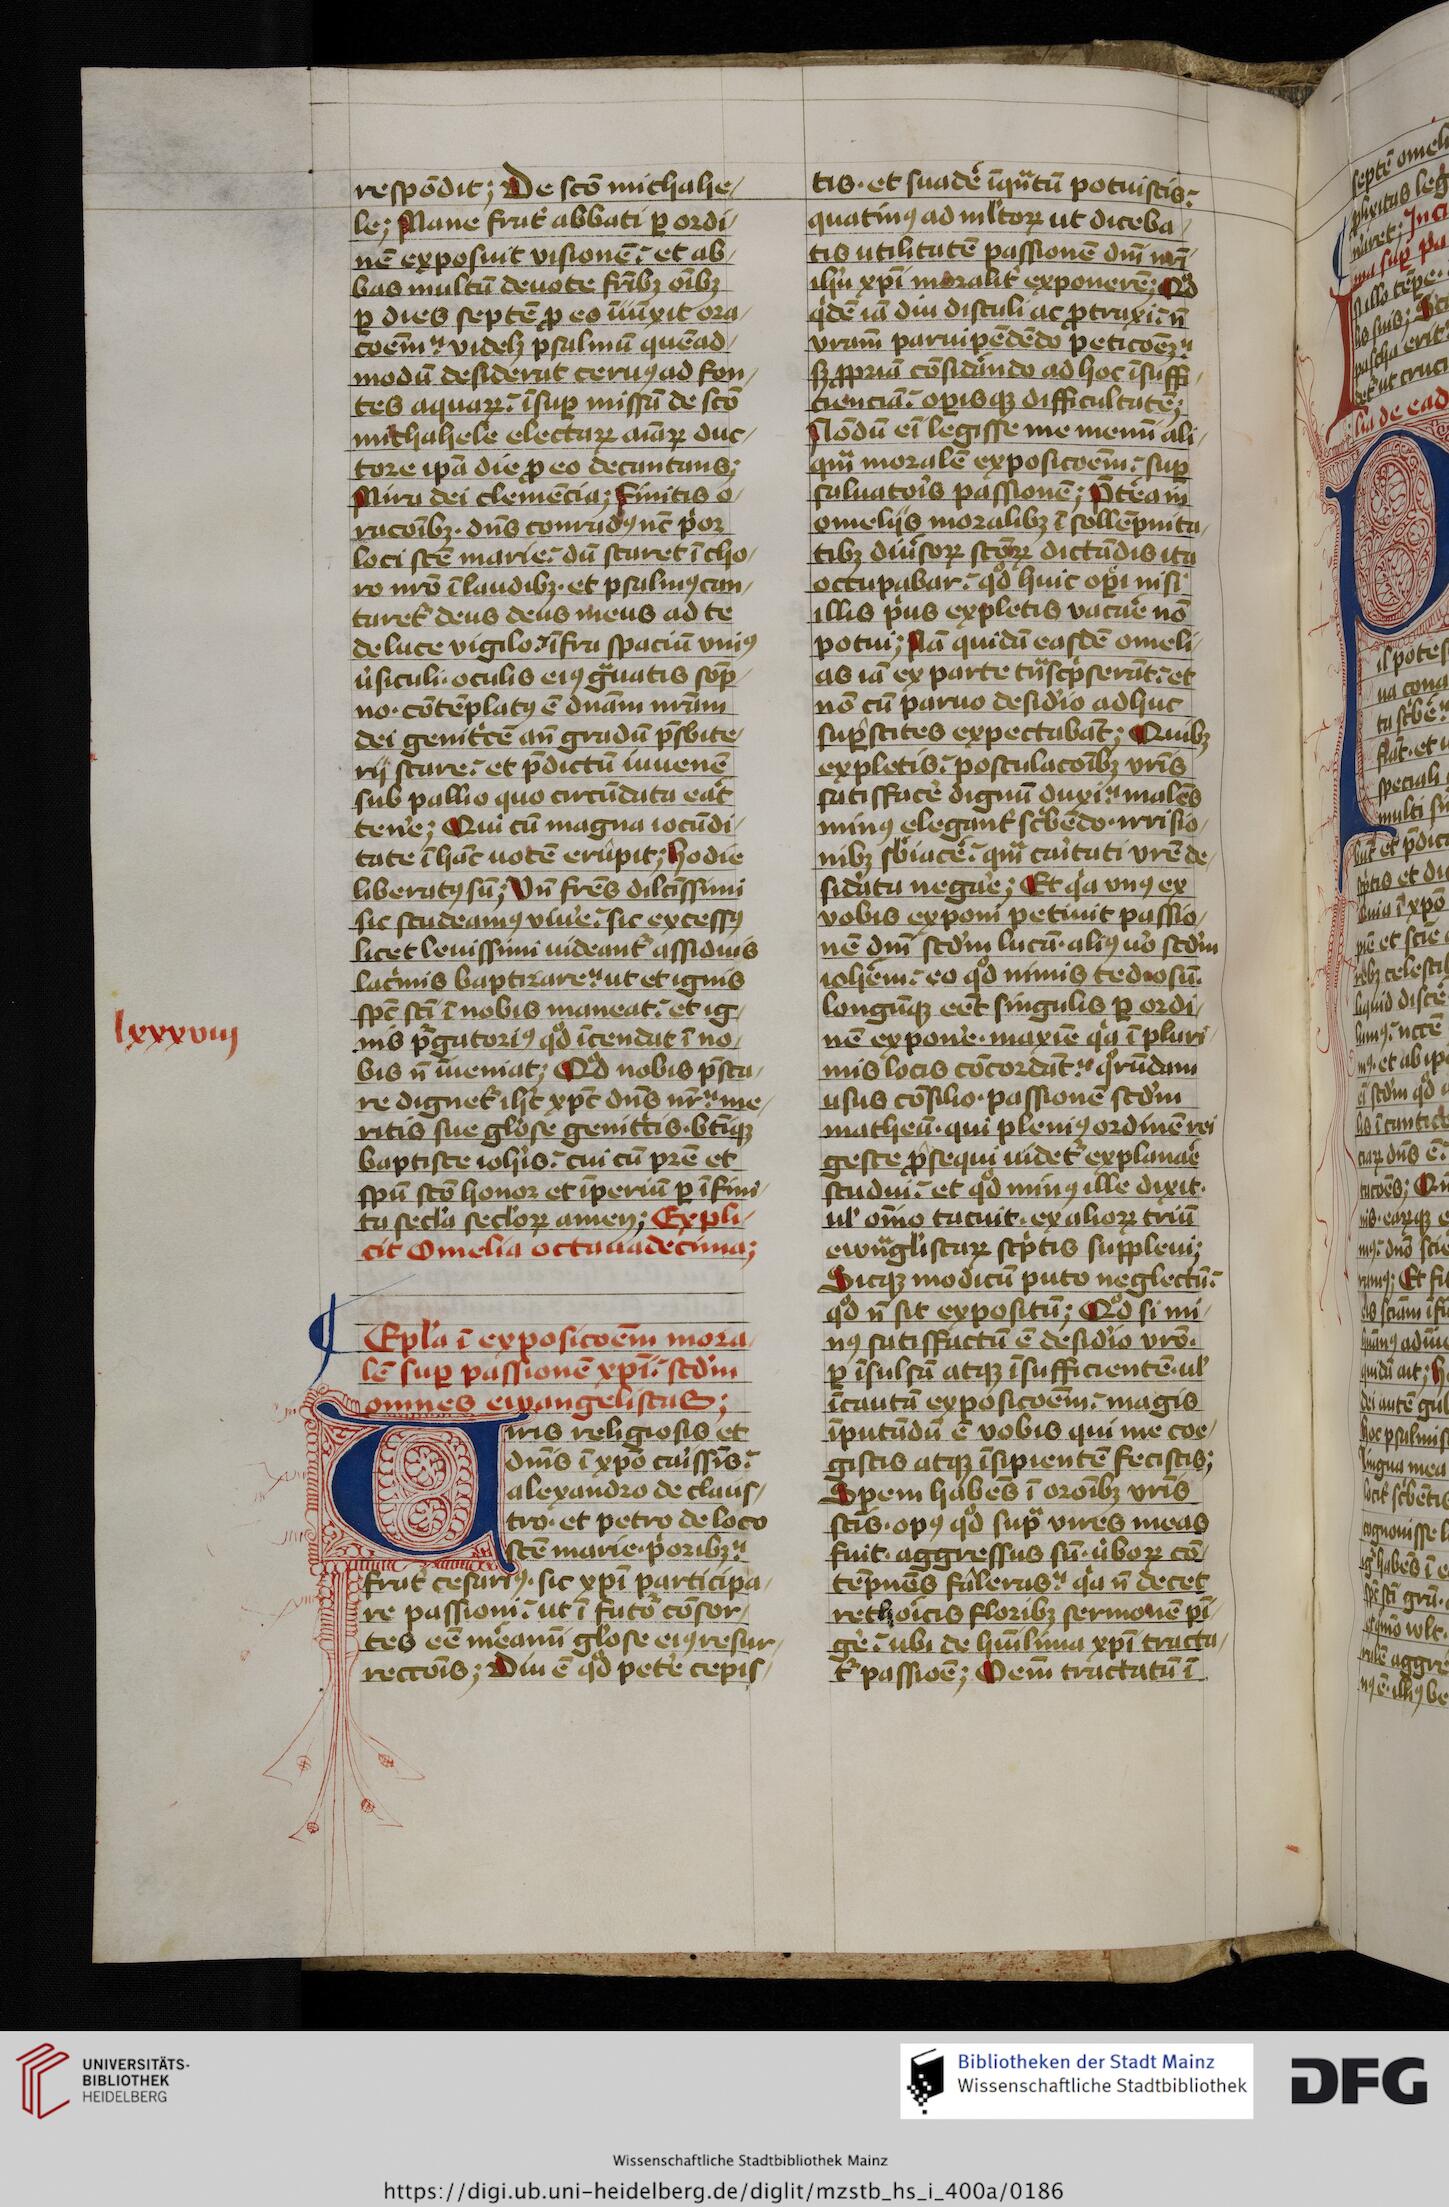 respōdit; De scō michahe/
le; Mane frat̉ abbati ꝑ ordi/
nē exposuit visionē: et ab/
bas multū deuote frībꝫ oībꝫ
ꝑ dies septē ꝓ eo iniūxit ora/
coēm: videlꝫ psalmū quēad/
modū desiderat ceruꝯ ad fon/
tes aquaꝝ: īsuꝑ missū de scō
michahele electaꝝ aīaꝝ duc/
tore ipā die ꝓ eo decantans;
Mira dei clemēcia; Finitis o/
racoībꝫ. dn̄s conradꝯ nc̄ pͥor
loci scē marie: dū staret ī cho/
ro nr̄o ī laudibꝫ. et psalmꝯ can/
taret̉ deus deus meus ad te
de luce vigilo: īfra spaciū vniꝯ
v̉siculi. oculis eiꝯ gͣuatis sōp/
no. cōtēplatꝯ ē dn̄am nr̄am
dei genitͥcē an̄ gradū p̄sbite/
rij stare: et p̄dictū iuuenē
sub pallio quo circūdata eāt
ten̉e; Qui cū magna iocūdi/
tate ī hac̄ uocē erūpit; Hodie
liberatꝯ sū; Vn̄ fres̄ dilcīssimi
sic studeamꝯ viủe: sic excessꝯ
licet leuissimi uideant̉ assiduis
lacͥmis baptizare: ut et ignis
spc̄ scī ī nobis maneat: et ig/
nis pᷣgatoriꝯ qͦd ītendat ī no/
bis n̄ iueniat; Qͦd nobis p̄sta/
re dignet̉ ihc̄ xpc̄ dn̄s nr̄: me/
ritis sue gloͥse genitͥcis. btīqꝫ
baptiste ioh̉is: cui cū pr̄e et
spū scō honor et īperiū ꝑ īfini/
ta secl̉a secl̉oꝝ amen; Expli/
cit Omelia octauadecima;
lxxxviij
Epl̉a ī exposicoēm mora/
lē suꝑ passionē xpī: scd̉m
omnes ewangelistas;
Viris religiosis et
dnīs ī xpō cāissīs:
alexandro de claus/
tro. et petro de loco
scē marie. pͥoribꝫ:
frat̉ cesariꝯ. sic xpī participa/
re passioni: ut ī futō cōsor/
tes eē mēamī gloͥse eiꝯ resur/
reccōis; Diu ē qͦd pet̉e cepis/
tis. et suadē īqͣtū potuistis:
quatinꝯ ad ml̉toꝝ ut diceba/
tis utilitatē passionē dnī nr̄i
ihū xpī moralit̉ exponerē; Qͦd
qͥdē iā diu distuli ac ꝓtraxi: n̄
vram̄ paruipēdēdo peticoēꝫ:
sꝫ ꝓpriā cōsid̉ando ad hoc īsuffi/
cienciā: opisqꝫ difficultatē;
Nōdū eī legisse me memī ali/
qͣm moralē exposicoēm: suꝑ
saluatoͥs passionē; P̄t̉ea in
omelijs moralibꝫ ī sollēpnita/
tibꝫ diủsoꝝ scōꝝ dictādis ita
occupabar: qͦd huic op̉i nisi
illis pͥus expletis vacāe nō
potui; Nā quidā easdē omeli/
as iā ex parte tͣscͥpserāt: et
nō cū paruo desid̉io adhuc
suꝑstites expectabāt; Quibꝫ
expletis: postulacoībꝫ vrīs
satisfac̉e dignū duxi: malēs
minꝯ elegant̉ scͥbēdo. irrisio/
nibꝫ sbͥiacē: qͣm caͥtati vrē de/
sid̉ata negāe; Et qͥa vnꝯ ex
vobis exponi petiuit passio/
nē dnī scd̉m lucā. aliꝯ uͦo scd̉m
iohēm: eo qͦd nimis tediosū
longūqꝫ eēt singulis ꝑ ordi/
nē expon̉e. maxīe qͥa ī pluri/
mis locis cōcordāt: qͦrūdam
usus cōsilio. passionē scd̉m
matheū. qui pleniꝯ ordinē rei
geste ꝓsequi uidet̉ explanāe
studui: et qͦd minꝯ ille dixit.
ul̉ oīno tacuit. ex alioꝝ triū
ewāgl̉istaꝝ scͥptis suppleui;
Sicqꝫ modicū puto neglectū:
qͦd n̄ sit expositū; Qͦd si mi/
nꝯ satisfactū ē desid̉io vrō.
ꝑ īsulsā atqꝫ īsufficientē. ul̉
īcautā exposicoēm: magis
īputādū ē vobis qui me coe/
gistis atqꝫ īsipientē fecistis;
Spem habēs ī orōībꝫ vrīs
scīs. opꝯ qͦd supͣ vires meas
fuit. aggressus sū. ủboꝝ cō/
tēpnēs fal̉eras: qͥa n̄ decet
rethoīcis floribꝫ sermonē pī/
gē: ubi de hūilima xpī tracta/
t̉ passioē; Oem̄ tractatū ī
UNIVERSITÄTS-
BIBLIOTHEK
HEIDELBERG
Bibliotheken der Stadt Mainz
Wissenschaftliche Stadtbibliothek
DFG
Wissenschaftliche Stadtbibliothek Mainz
https://digi.ub.uni-heidelberg.de/diglit/mzstb_hs_i_400a/0186